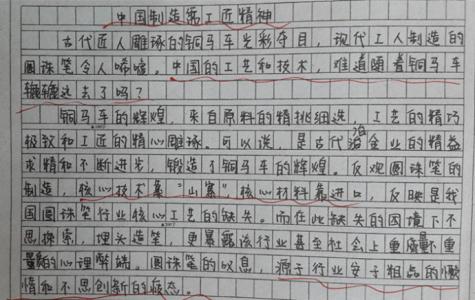 中国制造需工匠精神
古代匠人雕琢的铜马车光彩夺目，现代工人制造的
圆珠笔令人唏嘘。中国的工艺和技术，难道随着铜马车
辘辘远去了吗？
铜马车的辉煌，来自原料的精挑细选，工艺的精巧
极致和工匠的精心雕琢。可以说，是古代冶金业的精益
求精和不断进步，锻造了铜马车的辉煌。反观圆珠笔的
制造，核心技术靠“山寨”，核心材料靠进口，反映是我
国圆珠笔行业核心工艺的缺失。而在此缺失的困境下不
思探索，埋头造笔，更暴露该行业甚至社会上重量不重
质的心理弊端。圆珠笔的叹息，源于行业安于粗品的惰
情和不思创新的疲态。